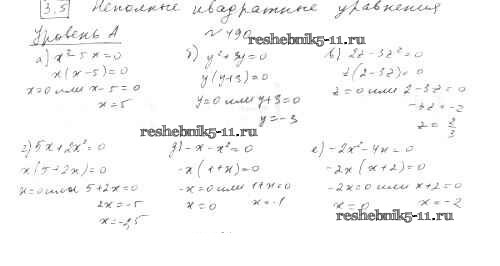 3.5 Неполные квадратные уравнения
Уровень А
№ 490
reshebnik5-11.ru
а) x² - 5x = 0
x(x-5)=0
x=0 или x-5=0
x=5
б) y²+3y=0
y(y+3)=0
y=0 или y+3=0
y=-3
в) 2z-3z²=0
z(2-3z)=0
z=0 или 2-3z=0
-3z=-2
z=2/3
reshebnik5-11.ru
г) 5x+2x²=0
x(5+2x)=0
x=0 или 5+2x=0
2x=-5
x=-2,5
д) -x-x²=0
-x(1+x)=0
-x=0 или 1+x=0
x=0 x=-1
е) -2x²-4x=0
-2x(x+2)=0
-2x=0 или x+2=0
x=0 x=-2
reshebnik5-11.ru